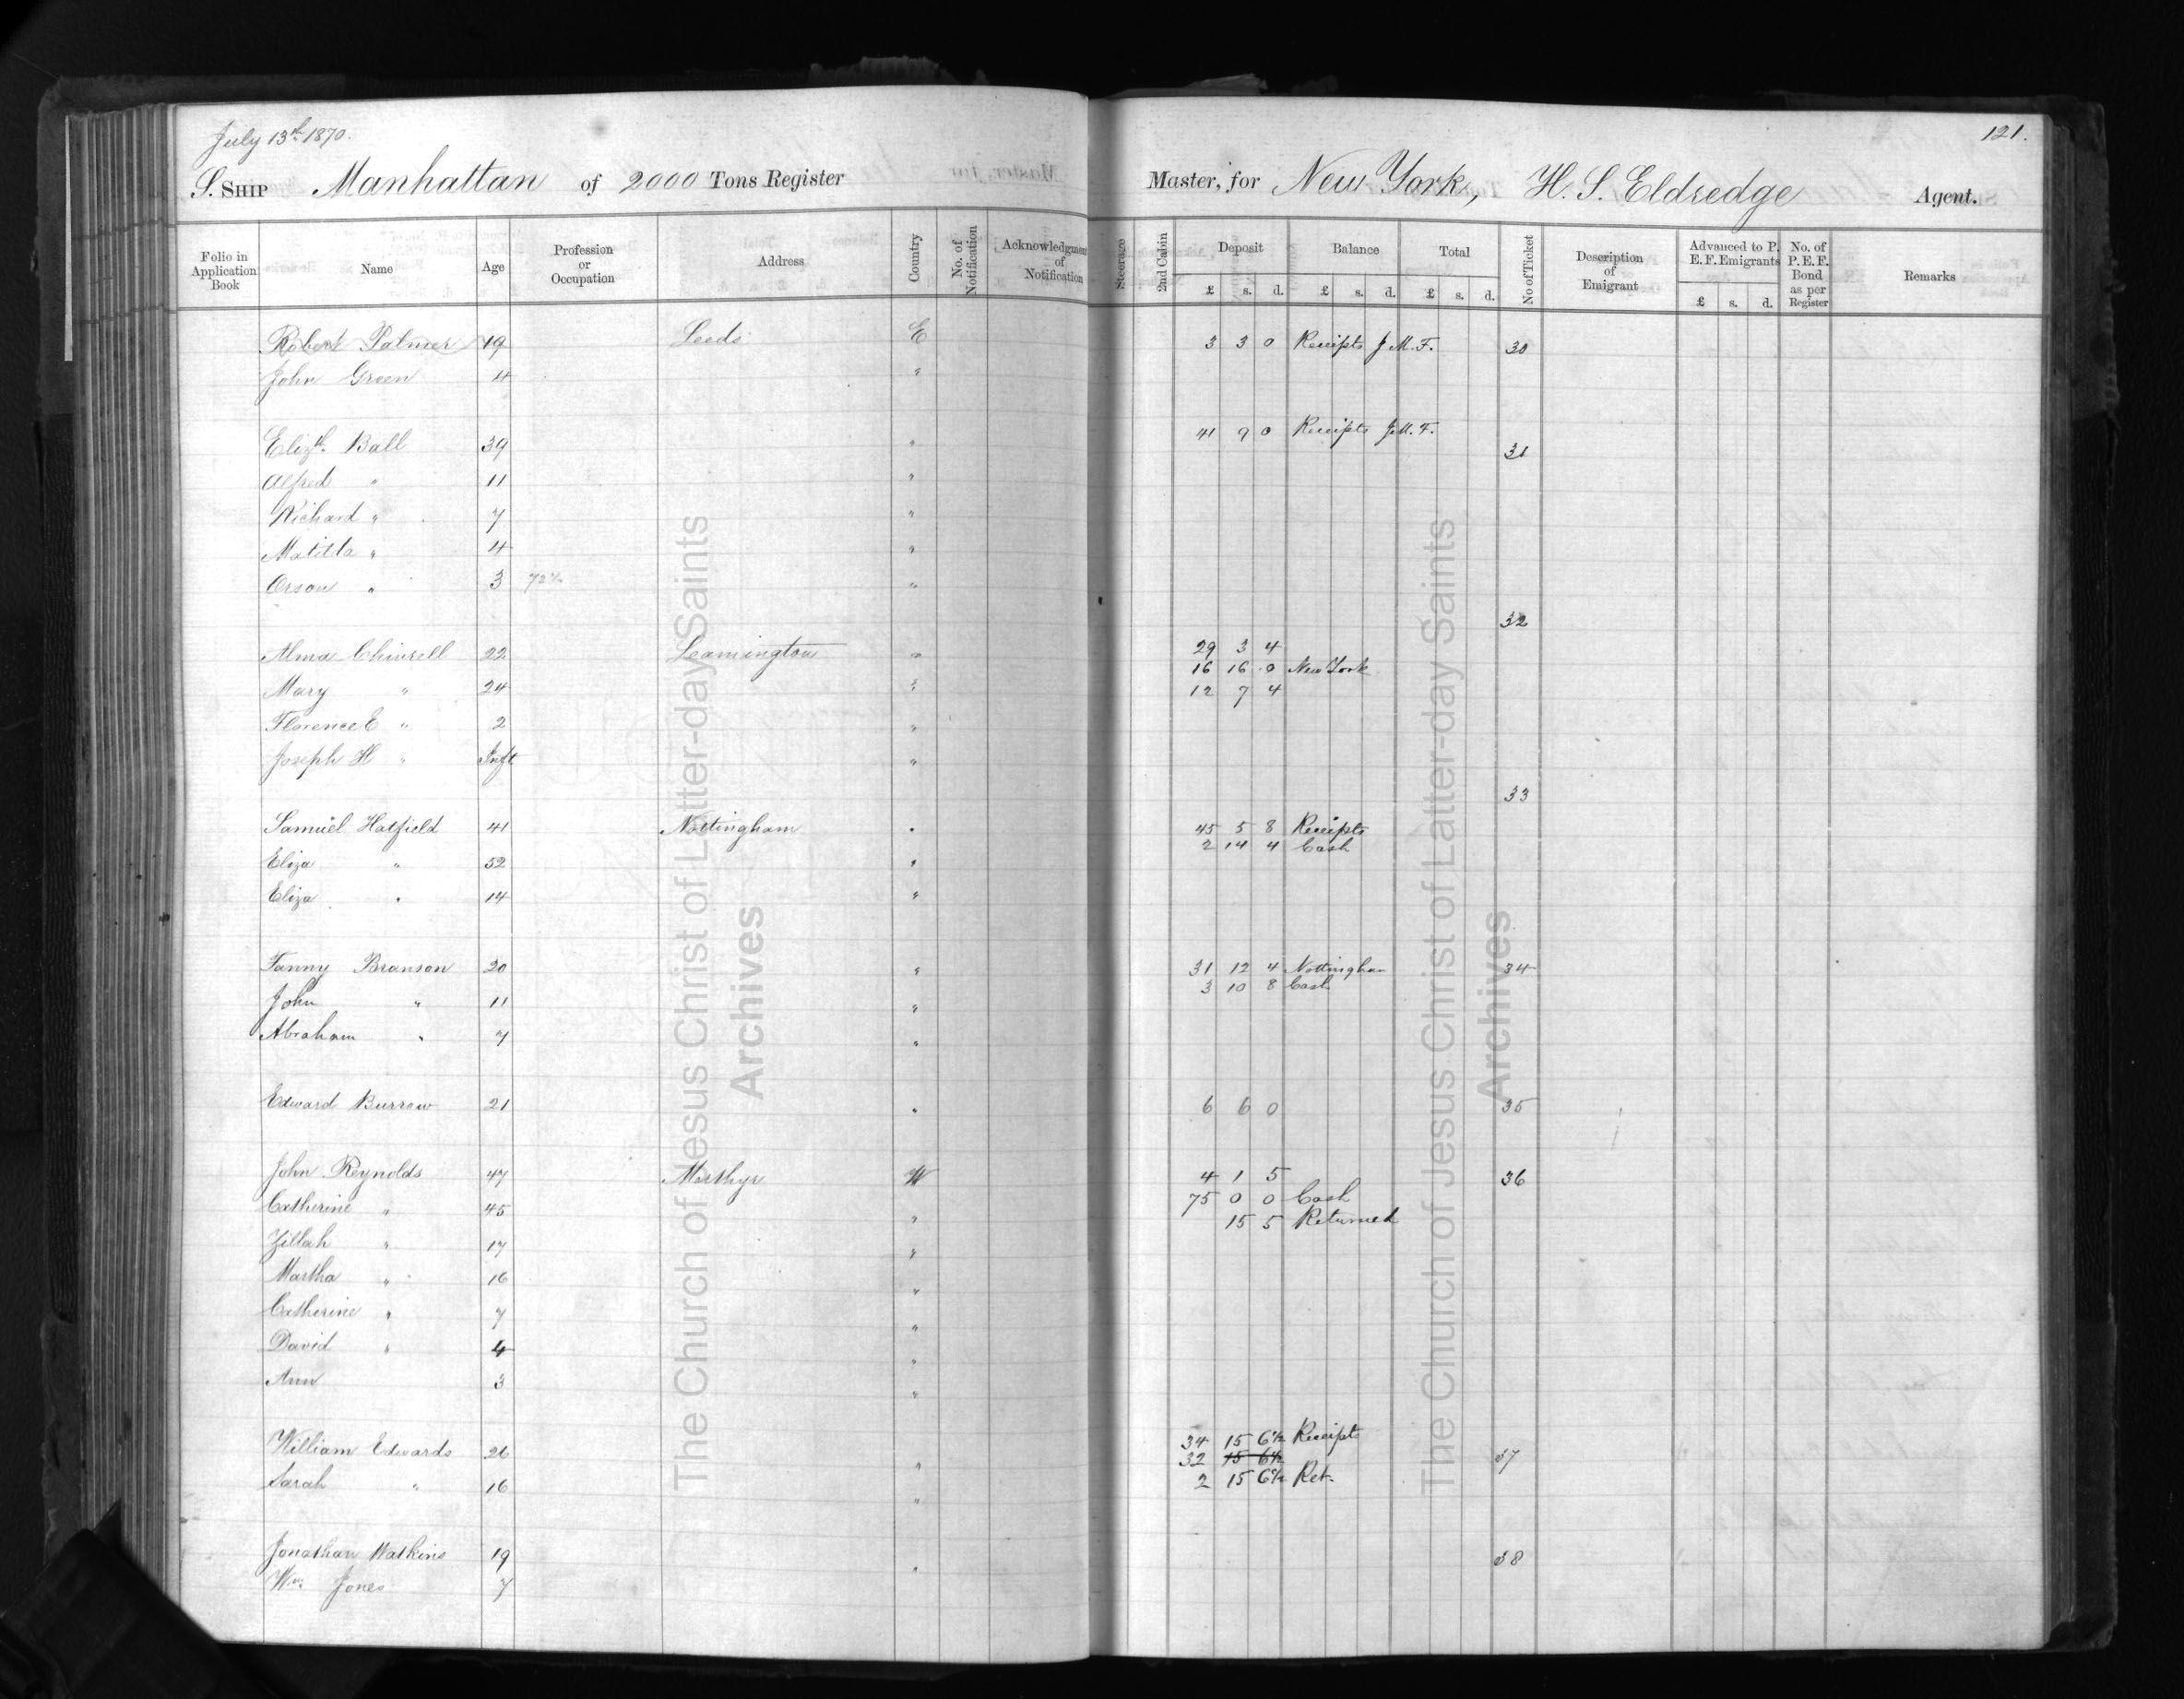 July 13th 1870.
121.
S. Ship Manhattan of 2000 Tons Register Master, for New York, H. S. Eldredge Agent.
Folio in Application Book Name Age Profession or Occupation Address Country No. of Notification Acknowledgment of Notification Steerage 2nd Cabin Deposit Balance Total No of Ticket Description of Emigrant Advanced to P. E. F. Emigrants No. of P. E. F. Bond as per Register Remarks
£ s. d. £ s. d. £ s. d. £ s. d.
Robert Palmer 19 Leeds E 3 3 0 Receipts J M. F. 30
John Green 4 "
Elizth. Ball 39 " 41 9 0 Receipts J. M. F. 31
Alfred " 11 "
Richard " 7 "
Matilda " 4 "
Orson " 3 "
32
Alma 22 Leamington " 29 3 4
16 16 0 New York
Mary " 24 " 12 7 4
Florence E " 2 "
Joseph H " Inft "
33
Samuel Hatfield 41 Nottingham " 45 5 8 Receipts
2 14 4 Cash
Eliza " 52 "
Eliza " 14 "
Fanny Branson 20 " 31 12 4 Nottingham 34
3 10 8 Cash
John " 11 "
Abraham " 7 "
Edward Burrow 21 " 6 6 0 35
John Reynolds 47 Merthyr W 4 1 5 36
75 0 0 Cash
Catherine " 45 " 15 5 Returned
Zillah " 17 "
Martha " 16 "
Catherine " 7 "
David " 4 "
Ann 3 "
34 15 6½ Receipts
William Edwards 26 " 32 15 6½ 37
Sarah " 16 " 2 15 6½ Ret.
Jonathan Watkins 19 " 38
Wm. Jones 7
The Church of Jesus Christ of Latter-day Saints
Archives
The Church of Jesus Christ of Latter-day Saints
Archives